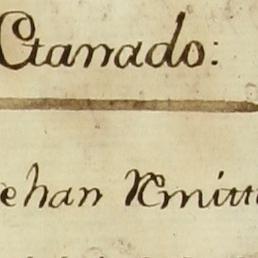 Ctanado:
ehan Remitt